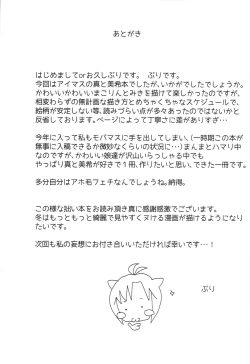 あとがき
はじめましてorお久しぶりです。 ぷりです。
今回はアイマスの真と美希本でしたが、いかがでしたでしょうか。
かわいいかわいいまこりんとみきを描けて楽しかったのですが、
相変わらずの無計画な描き方とめちゃくちゃなスケジュールで、
絵柄が安定しない等、読みづらい点が多々あったのではないかと
反省しております。ページによって丁寧さに差がありすぎ…
今年に入って私もモバマスに手を出してしまい、(一時期この本が
無事に入稿できるか微妙なくらいの状況に…)まんまとハマり中
なのですが、かわいい娘達が沢山いらっしゃる中でも
やっぱり真と美希が好きで1冊、作りたいと思い、できた一冊です。
多分自分はアホ毛フェチなんでしょうね。納得。
この様な拙い本をお読み頂き真に感謝感激でございます。
冬はもっともっと綺麗で見やすくヌける漫画が描けるようになり
たいです。
次回も私の妄想にお付き合いいただければ幸いです…!
ぷり